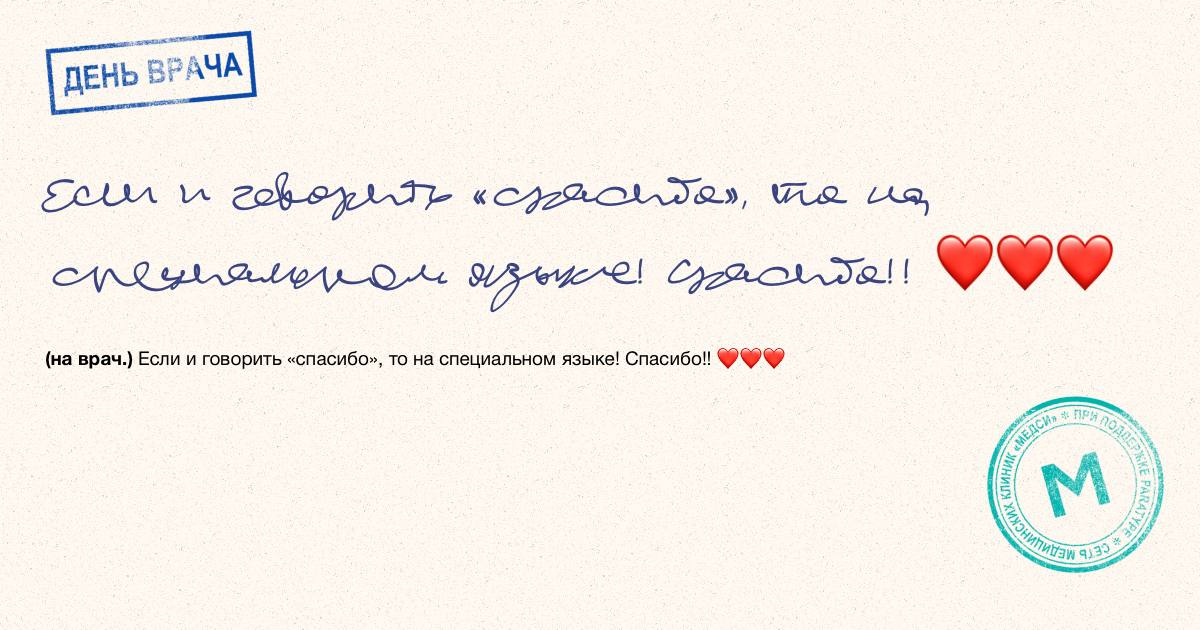 ДЕНЬ ВРАЧА
Если и говорить «спасибо», то на
специальном языке! Спасибо!! ❤️❤️❤️
(на врач.) Если и говорить «спасибо», то на специальном языке! Спасибо!! ❤️❤️❤️
СЕТЬ МЕДИЦИНСКИХ КЛИНИК «МЕДСИ» * ПРИ ПОДДЕРЖКЕ PARATYPE *
М